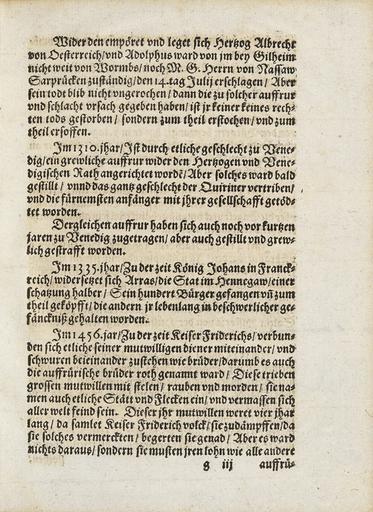 Wider den empöret vnd leget sich Hertzog Albrecht
von Oesterreich/vnd Adolphus ward von jm bey Gilheim
nicht weit von Wormbs/noch M. G. Herrn von Nassaw
Sarprücken zuständig/den 14.tag Julij erschlagen/ Aber
sein todt blib nicht vngerochen/dann die zu solcher auffrur
vnd schlacht vrsach gegeben haben/ist jr keiner keines rech-
ten tods gestorben/ sondern zum theil erstochen/vnd zum
theil ersoffen.
Im 1310.jhar/Ist durch etliche geschlecht zu Vene-
dig/ein grewliche auffrur wider den Hertzogen vnd Vene-
digischen Rath angerichtet wordē/Aber solches ward bald
gestillt/ vnnd das gantz geschlecht der Quiriner vertriben/
vnd die fürnemsten anfänger mit jhrer gesellschafft getöd-
tet worden.
Dergleichen auffrur haben sich auch noch vor kurtzen
jaren zu Venedig zugetragen/aber auch gestillt vnd grew-
lich gestrafft worden.
Im 1335.jhar/Zu der zeit König Johans in Franck-
reich/widersetzt sich Arras/die Stat im Hennegaw/einer
schatzung halber/ Sein hundert Bürger gefangen vñ zum
theil geköpfft/die andern jr lebenlang in beschwerlicher ge-
fäncknuß gehalten worden.
Im 1456.jar/Zu der zeit Keiser Friderichs/verbun-
den sich etliche seiner mutwilligen diener miteinander/vnd
schwuren beieinander zustehen wie brüder/darumb es auch
die auffrürische brüder roth genannt ward/ Diese trieben
grossen mutwillen mit stelen/ rauben vnd morden/ sie na-
men auch etliche Stätt vnd Flecken ein/vnd vermassen sich
aller welt feind sein. Dieser jhr mutwillen weret vier jhar
lang/ da samlet Keiser Friderich volck/sie zudämpffen/da
sie solches vermerckten/ begerten sie genad/ Aber es ward
nichts daraus/sondern sie musten jren lohn wie alle andere
g iij auffrü-